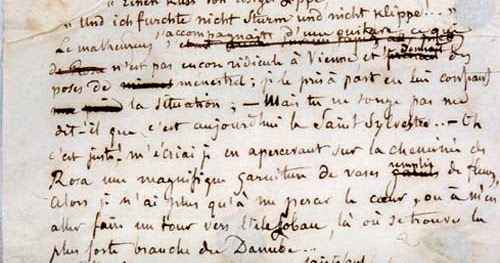 " Einen Kuss von rosiger Lippe,
" Und ich furchte nicht Sturm und nicht Klippe!... "
Le malheureux, s'accompagnait d'une guitare ce qui
n'est pas encor ridicule à Vienne et se donnait des
poses de ménestrel ; je le pris à part en lui confiant
la situation ; — Mais tu ne songe pas me
dit-il que c'est aujourd'hui la Saint Sylvestre... — Oh
c'est juste! m'écriai-je en apercevant sur la cheminée de
Rosa une magnifique garniture de vases remplis de fleurs,
Alors je n'ai plus qu'à me percer le cœur, ou à m'en
aller faire un tour vers l'île Lobau, là où se trouve la
plus forte branche du Danube...